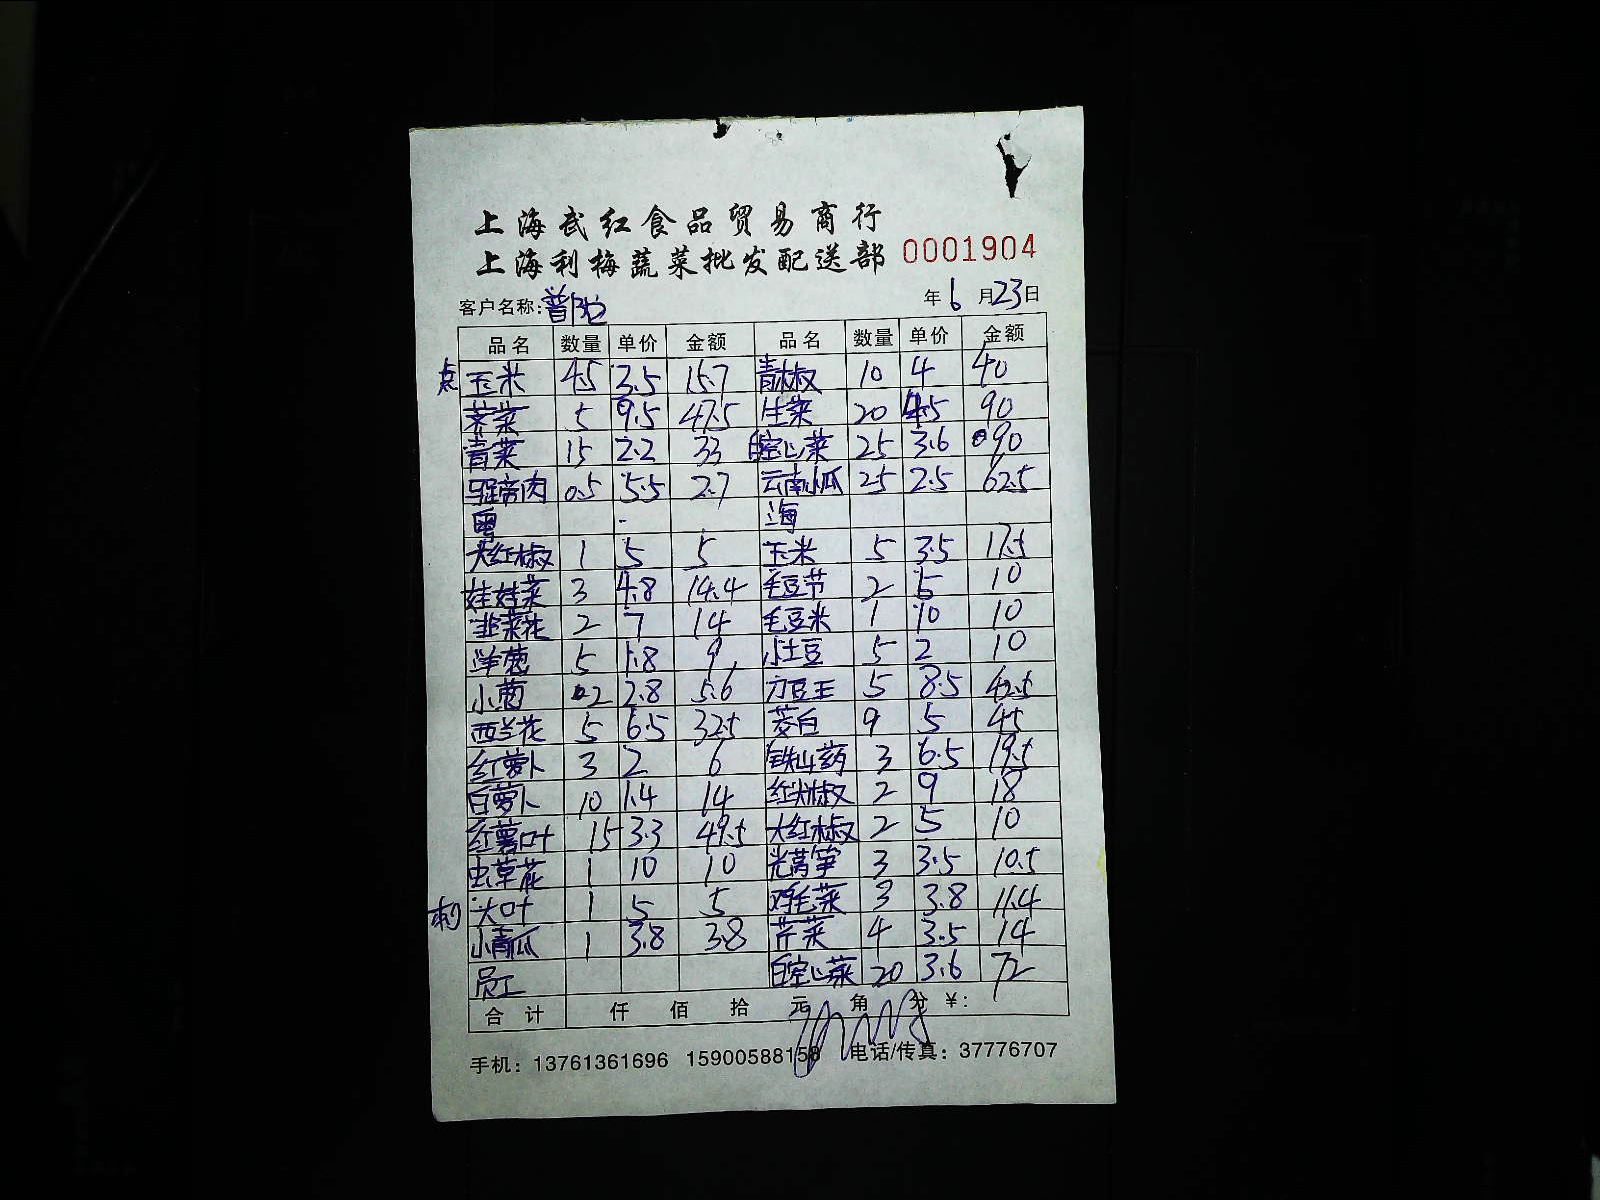 上海武红食品贸易商行
上海利梅蔬菜批发配送部 0001904
客户名称:普陀 年6月23日
品名 数量 单价 金额 品名 数量 单价 金额
点 玉米 4.5 3.5 15.7 青椒 10 4 40
荠菜 5 9.5 47.5 生菜 20 4.5 90
青菜 15 2.2 33 白空心菜 25 3.6 90
马蹄肉 0.5 5.5 2.7 云南小瓜 25 2.5 62.5
粤 海
大红椒 1 5 5 玉米 5 3.5 17.5
娃娃菜 3 4.8 14.4 毛豆节 2 5 10
韭菜花 2 7 14 毛豆米 1 10 10
洋葱 5 1.8 9 小土豆 5 2 10
小葱 2 2.8 5.6 方豆王 5 8.5 42.5
西兰花 5 6.5 32.5 茭白 9 5 45
红萝卜 3 2 6 铁山药 3 6.5 19.5
白萝卜 10 1.4 14 红尖椒 2 9 18
红薯叶 15 3.3 49.5 大红椒 2 5 10
虫草花 1 10 10 光莴笋 3 3.5 10.5
刺 大叶 1 5 5 鸡毛菜 3 3.8 11.4
小青瓜 1 3.8 3.8 芹菜 4 3.5 14
员工 白空心菜 20 3.6 72
合计 仟 佰 拾 元 角 分 ¥:
手机：13761361696 15900588158 电话/传真：37776707